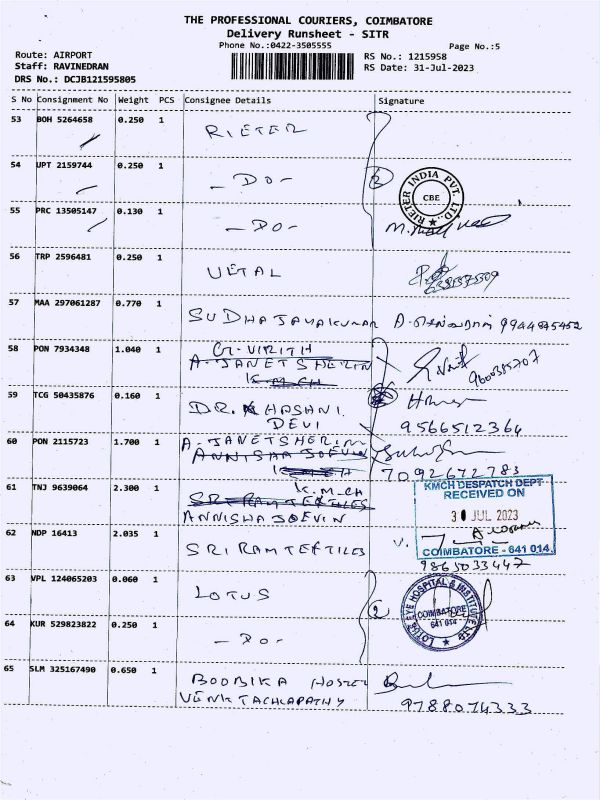 THE PROFESSIONAL COURIERS, COIMBATORE
Delivery Runsheet - SITR
Phone No.:0422-3505555
Page No.:5
Route: AIRPORT
RS No.: 1215958
Staff: RAVINEDRAN
RS Date: 31-Jul-2023
DRS No.: DCJB121595805
S No Consignment No Weight PCS Consignee Details Signature
53 BOH 5264658 0.250 1 RIETER
54 UPT 2159744 0.250 1 -DO- 2
RIETER INDIA PVT. LTD. CBE
55 PRC 13505147 0.130 1 -DO-
56 TRP 2596481 0.250 1 UETAL
57 MAA 297061287 0.770 1 SUDHA JAYAKUMAR
58 PON 7934348 1.040 1 G. VIRITH
A-JANET SHERIN
K.M.CH
9600385707
59 TCG 50435876 0.160 1 DR. HASANI DEVI
9566512364
60 PON 2115723 1.700 1 A-JANETSHERIN
ANNISHA JOEVIN
K.M.CH
7092672783
61 TNJ 9639064 2.300 1 K.M.CH
SRI RAM TEXTILES
ANNISHA JOEVIN
KMCH DESPATCH DEPT
RECEIVED ON
31 JUL 2023
COIMBATORE - 641 014.
62 NDP 16413 2.035 1 SRI RAM TEXTILES
9865033447
63 VPL 124065203 0.060 1 LOTUS 2
LOTUS EYE HOSPITAL & INSTITUTE LTD
COIMBATORE
641 014
64 KUR 529823822 0.250 1 -DO-
65 SLM 325167490 0.650 1 BOOBIKA HOSTEL
VENKTACHLAPATHY
9788074333